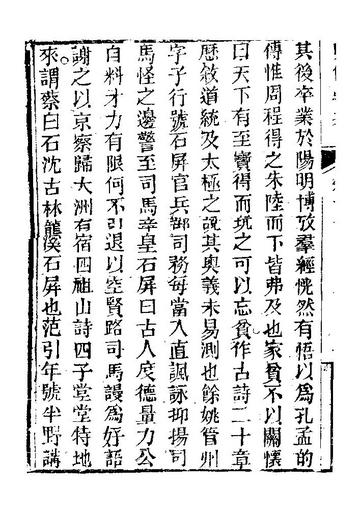 其後卒業於陽明博攷羣經恍然有悟以爲孔孟的
傳惟周程得之朱陸而下皆弗及也家貧不以關懷
曰天下有至寳得而玩之可以忘貧作古詩二十章
歷敘道統及太極之說其奧義未易測也餘姚管州
字子行號石屏官兵部司務每當入直諷詠抑揚司
馬怪之邊警至司馬章皇石屏曰古人度德量力公
自料才力有限何不引退以空賢路司馬謾爲好語
謝之以京察歸大洲有宿四祖山詩四子堂堂特地
來謂蔡白石沈古林龍溪石屏也范引年號半野講